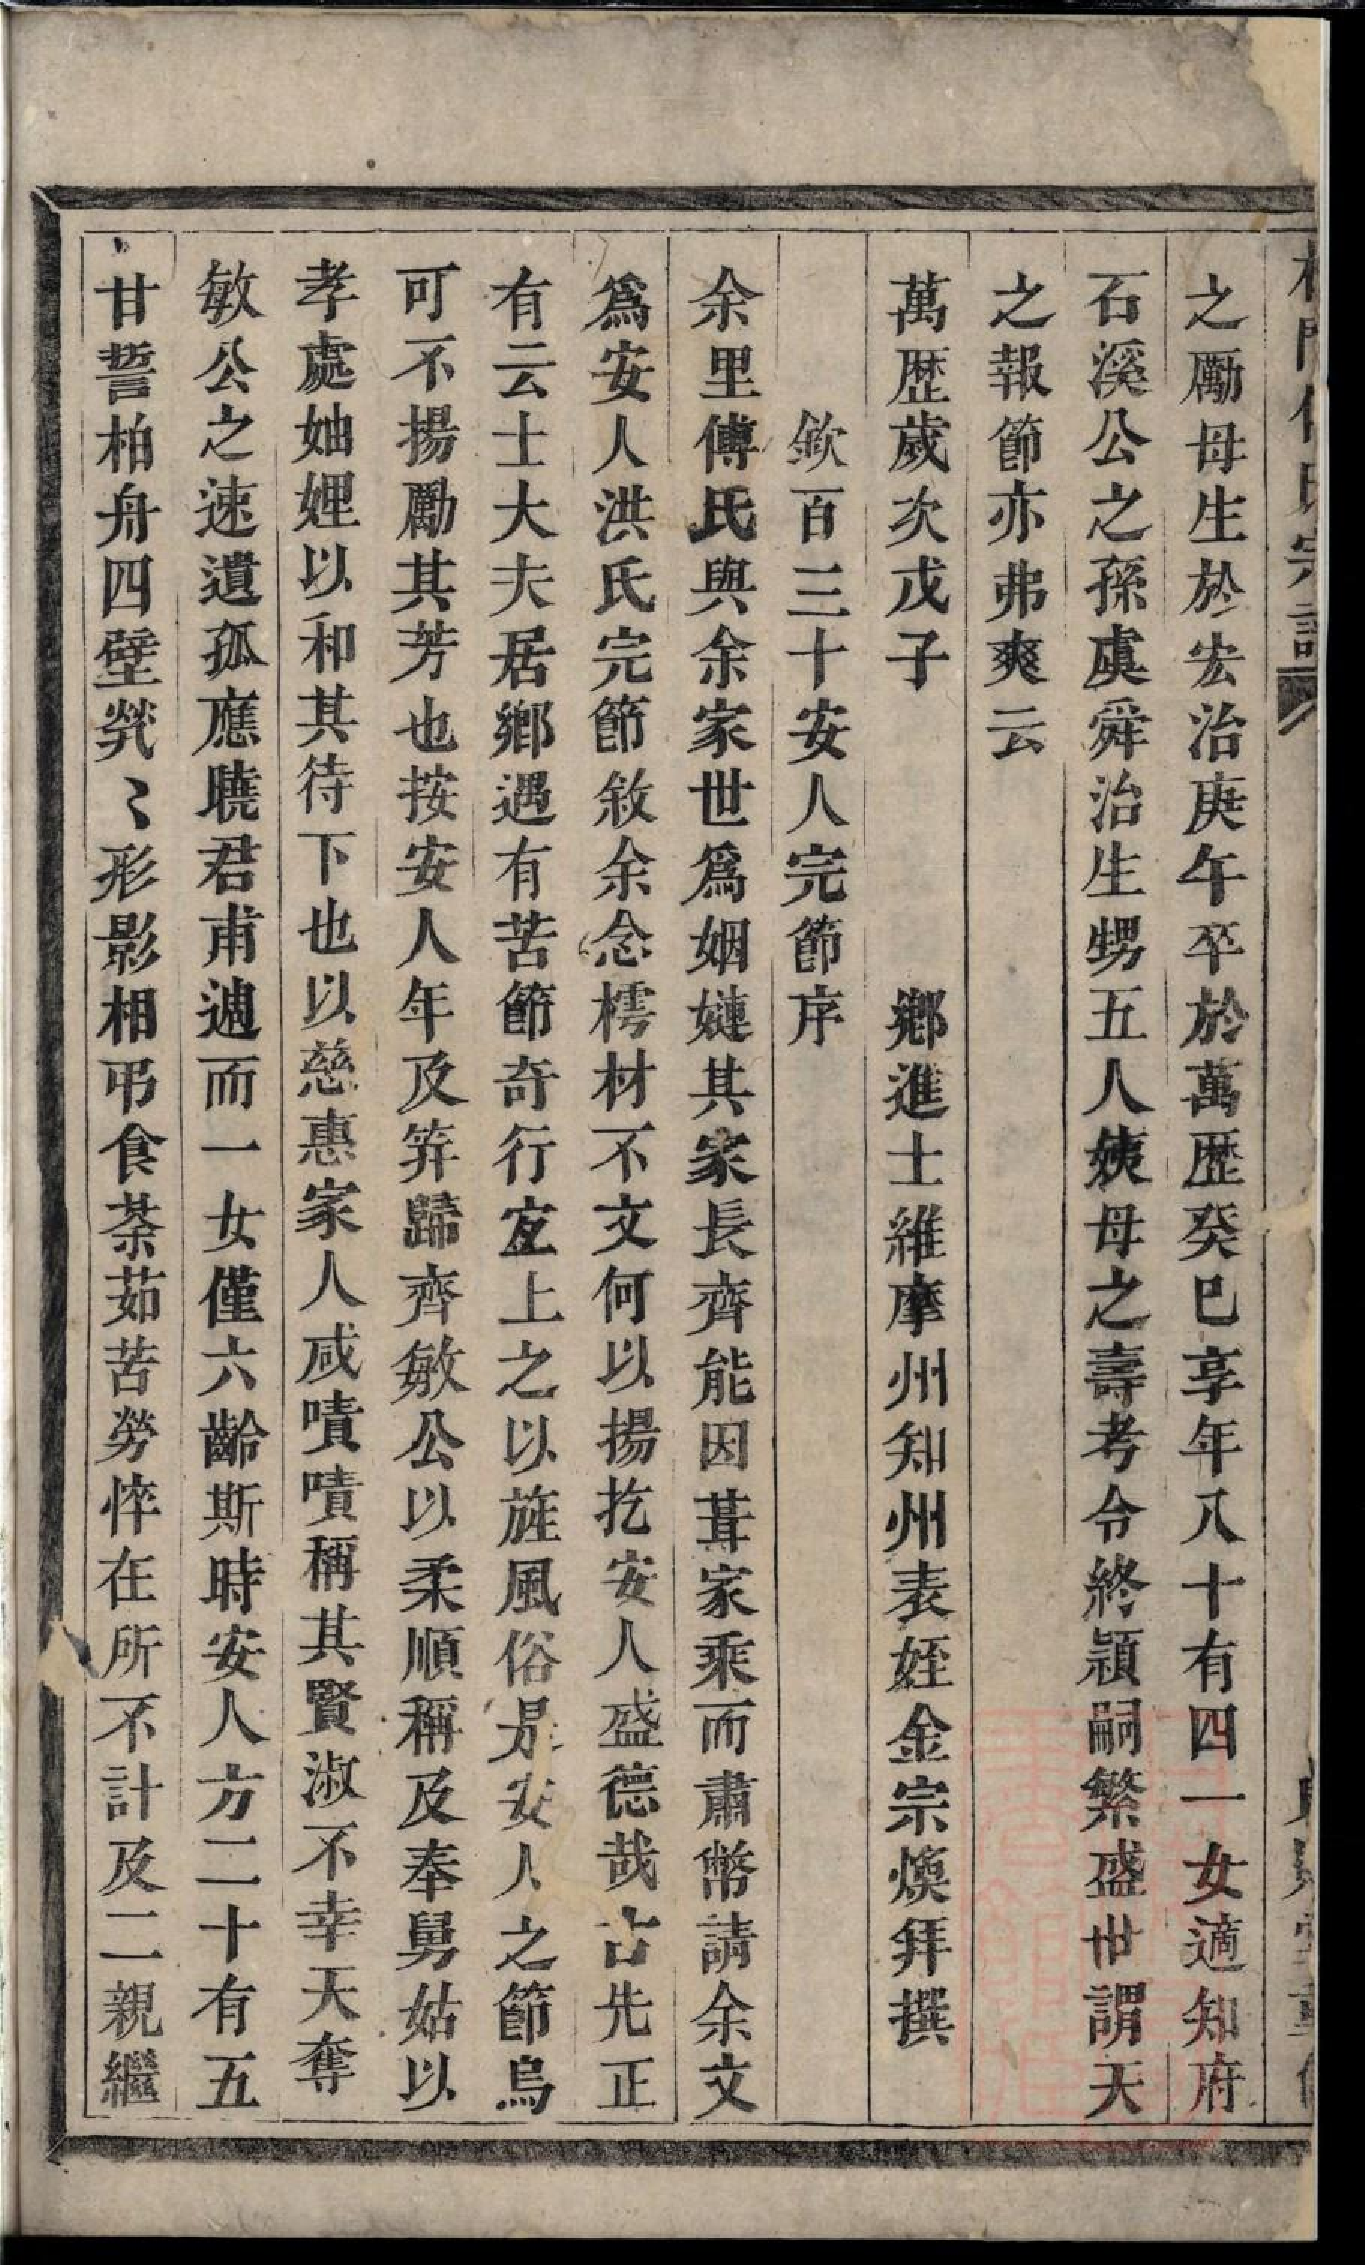 之勵母生於宏治庚午卒於萬歷癸巳享年八十有四一女適知府
石溪公之孫虞舜治生甥五人姨母之壽考令終穎嗣繁盛世謂天
之報節亦弗爽云
萬歷歲次戊子　鄉進士維摩州知州表姪金宗煥拜撰
欽百三十安人完節序
余里傅氏與余家世爲姻娣其家長齊能因葺家乘而肅幣請余文
爲安人洪氏完節敘余念樗材不文何以揚扢安人盛德哉古先正
有云士大夫居鄉遇有苦節奇行宐上之以旌風俗是安人之節烏
可不揚勵其芳也按安人年及笄歸齊敏公以柔順稱及奉舅姑以
孝處妯娌以和其待下也以慈惠家人咸嘖嘖稱其賢淑不幸天奪
敏公之速遺孤應曉君甫過而一女僅六齡斯時安人方二十有五
甘誓柏舟四壁煢〻形影相弔食荼茹苦勞悴在所不計及二親繼